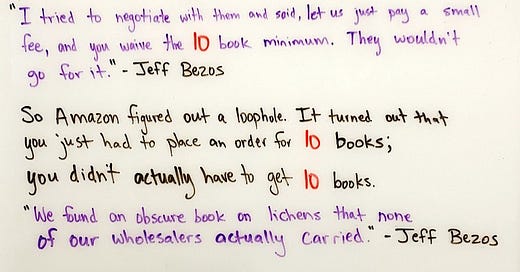 "I tried to negotiate with them and said, let us just pay a small
fee, and you waive the 10 book minimum. They wouldn't
go for it." - Jeff Bezos
So Amazon figured out a loophole. It turned out that
you just had to place an order for 10 books;
you didn't actually have to get 10 books.
"We found an obscure book on lichens that none
of our wholesalers actually carried." - Jeff Bezos